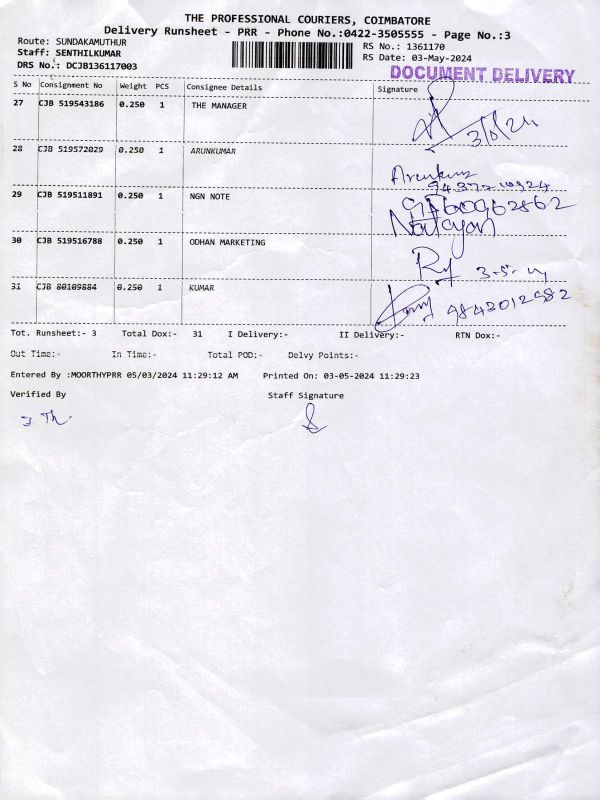 THE PROFESSIONAL COURIERS, COIMBATORE
Delivery Runsheet - PRR - Phone No.:0422-3505555 - Page No.:3
Route: SUNDAKAMUTHUR RS No.: 1361170
Staff: SENTHILKUMAR RS Date: 03-May-2024
DRS No.: DCJB136117003 DOCUMENT DELIVERY
S No Consignment No Weight PCS Consignee Details Signature
27 CJB 519543186 0.250 1 THE MANAGER
3/5/24
28 CJB 519572029 0.250 1 ARUNKUMAR
Arunkumar
29 CJB 519511891 0.250 1 NGN NOTE
Narayan
30 CJB 519516788 0.250 1 ODHAN MARKETING
3-5-24
31 CJB 80109884 0.250 1 KUMAR
9843012982
Tot. Runsheet:- 3 Total Dox:- 31 I Delivery:- II Delivery:- RTN Dox:-
Out Time:- In Time:- Total POD:- Delvy Points:-
Entered By :MOORTHYPRR 05/03/2024 11:29:12 AM Printed On: 03-05-2024 11:29:23
Verified By Staff Signature